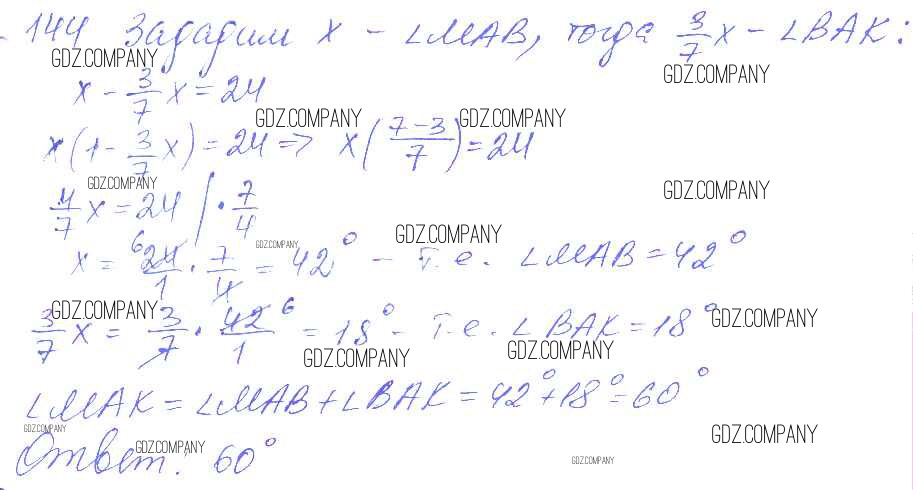 144 Зададим x - ∠MAB, тогда 3/7 x - ∠BAK:
GDZ.COMPANY GDZ.COMPANY
x - 3/7 x = 24
GDZ.COMPANY GDZ.COMPANY
x(1 - 3/7 x) = 24 => x((7-3)/7) = 24
GDZ.COMPANY GDZ.COMPANY
4/7 x = 24 | · 7/4
GDZ.COMPANY GDZ.COMPANY
x = 6 24/1 · 7/4 = 42° - т.е. ∠MAB = 42°
GDZ.COMPANY GDZ.COMPANY
3/7 x = 3/7 · 42/1 6 = 18° - т.е. ∠BAK = 18°
GDZ.COMPANY GDZ.COMPANY
∠MAK = ∠MAB + ∠BAK = 42° + 18° = 60°
GDZ.COMPANY GDZ.COMPANY
Ответ: 60°
GDZ.COMPANY GDZ.COMPANY